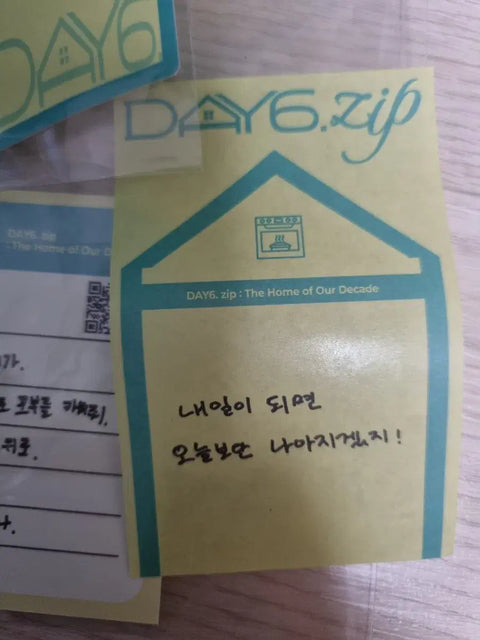 DAY6.
DAY6.zip
DAY6. zip : The Home of Our Decade
내일이 되면
오늘보단 나아지겠지!
DAY6. zip
: The Home of Our D
가.
위로.